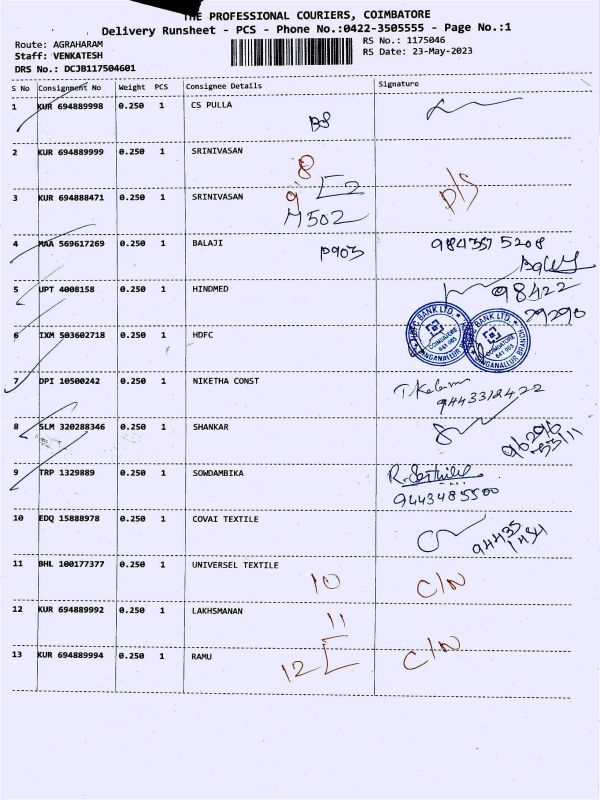 THE PROFESSIONAL COURIERS, COIMBATORE
Delivery Runsheet - PCS - Phone No.:0422-3505555 - Page No.:1
Route: AGRAHARAM
Staff: VENKATESH
DRS No.: DCJB117504601
RS No.: 1175046
RS Date: 23-May-2023
S No Consignment No Weight PCS Consignee Details Signature
1 KUR 694889998 0.250 1 CS PULLA
2 KUR 694889999 0.250 1 SRINIVASAN
8
3 KUR 694888471 0.250 1 SRINIVASAN D/S
9
M502
4 MAA 569617269 0.250 1 BALAJI P903 984357 5208
5 UPT 4008158 0.250 1 HINDMED 98422
29290
6 IXM 503602718 0.250 1 HDFC
HDFC BANK LTD.
COIMBATORE
641 005
SINGANALLUR BRANCH
7 DPI 10500242 0.250 1 NIKETHA CONST
9443312422
8 SLM 320288346 0.250 1 SHANKAR
9 TRP 1329889 0.250 1 SOWDAMBIKA
9443485500
10 EDQ 15888978 0.250 1 COVAI TEXTILE
94435
11 BHL 100177377 0.250 1 UNIVERSEL TEXTILE
10 C/N
12 KUR 694889992 0.250 1 LAKHSMANAN
11
13 KUR 694889994 0.250 1 RAMU C/N
12